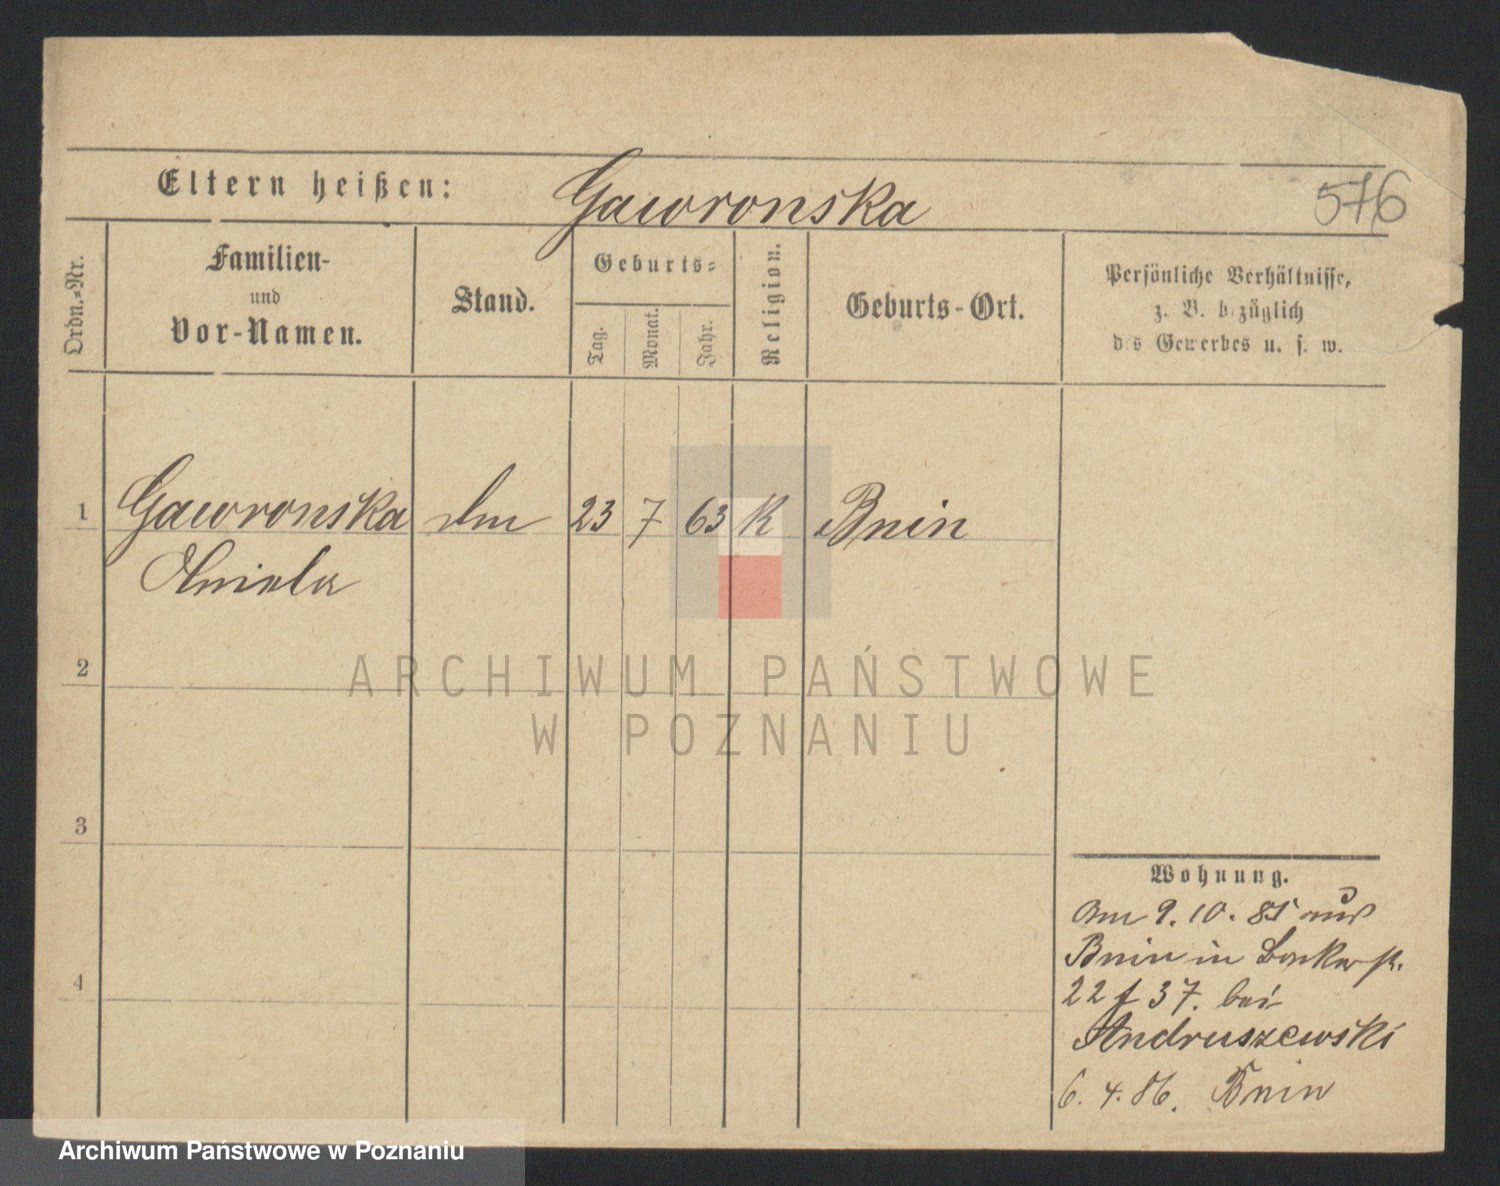 Eltern heißen: Gaworonska
576
Ordn.=Nr.
Familien-
und
Vor-Namen.
Stand.
Geburts=
Tag.
Monat.
Jahr.
Religion.
Geburts-Ort.
Persönliche Verhältnisse,
z. B. bezüglich
des Gewerbes u. s. w.
1 Gaworonska 23 7 63 K Bnin
Aniela
2
ARCHIWUM PAŃSTWOWE
W POZNANIU
3
Wohnung.
Am 9.10.85 aus
Bnin in
22 f 37. bei
4
Andruszewski
6.4.86. Bnin
Archiwum Państwowe w Poznaniu